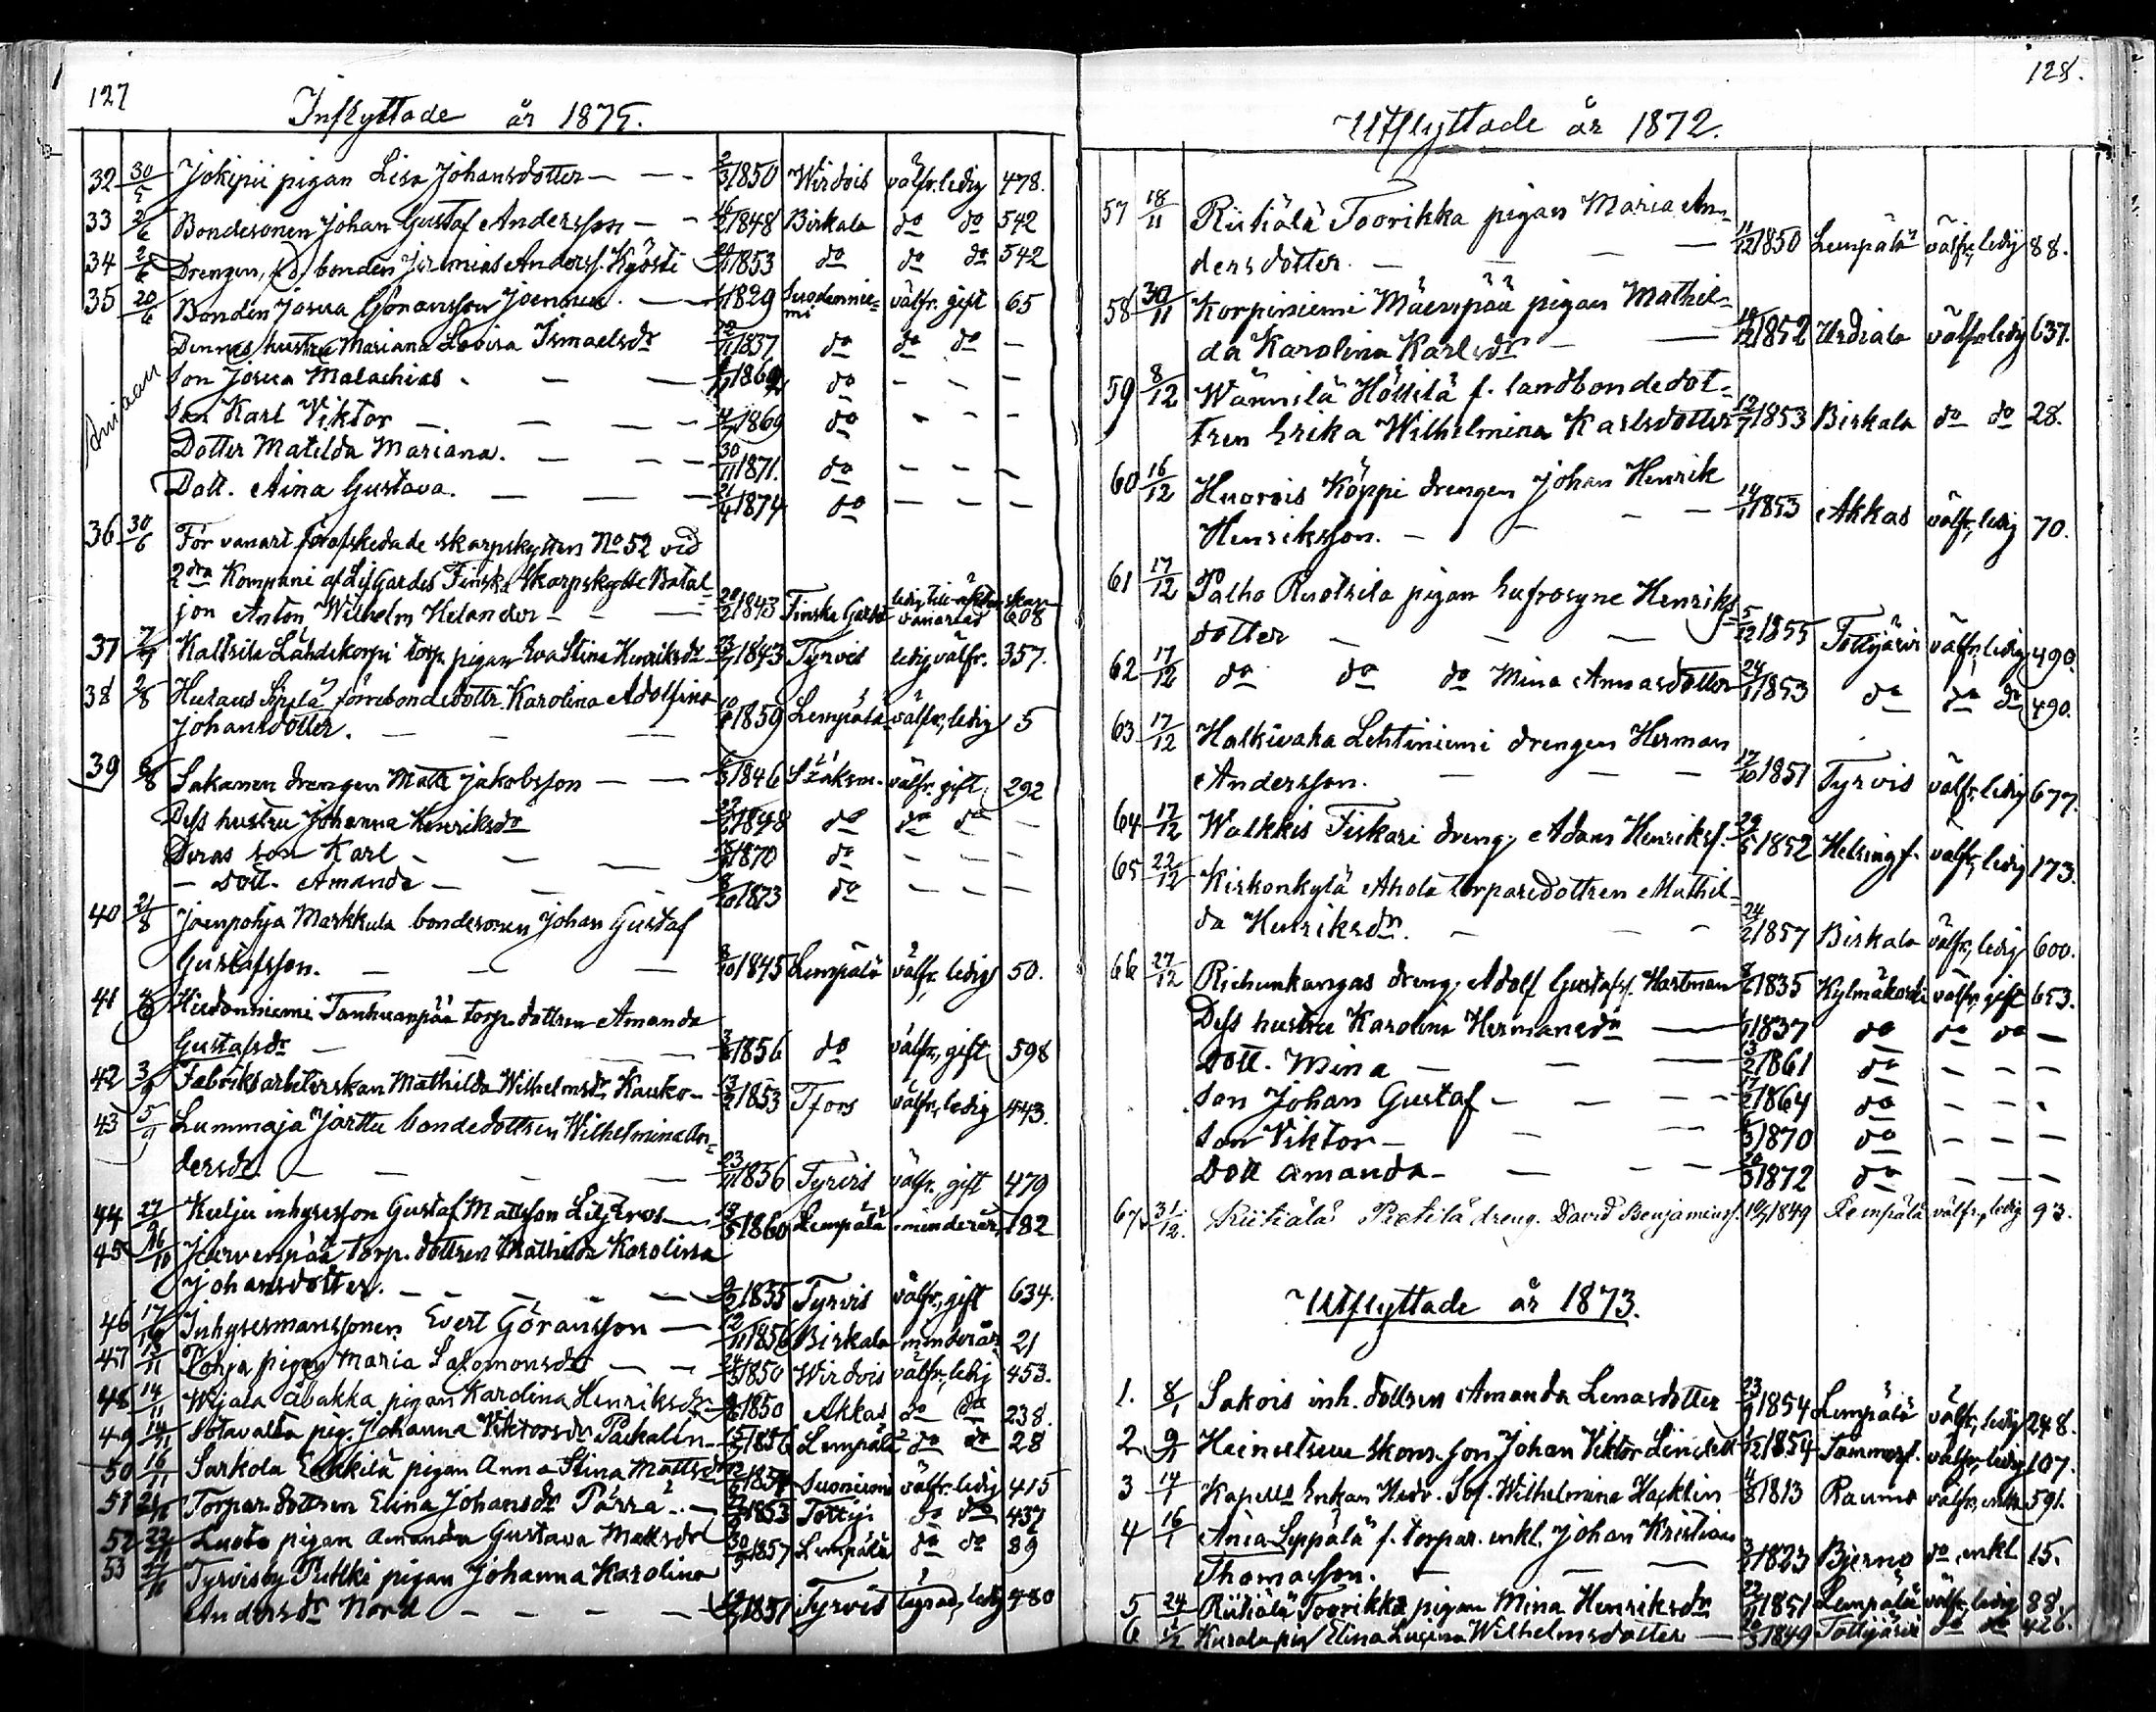 127
Inflyttade år 1875.
32 30/5 Jokipii pigan Lisa Johansdotter — — - 2/3 1850 Wirdois välfr. ledig 478.
33 2/6 Bondesonen Johan Gustaf Andersson — - 1848 Birkala do do 542
34 2/6 Drengen, bonden Jeremias Anderss. Kyösti 1853 do do do 542
35 20/6 Bonden Josua Göransson Joennia. — 1829 Suodennie= välfr. gift 65
mi
Dennes hustru Mariana Lovisa Ismaelsdr 1837 do do do —
Son Josua Malachias - — — do — — —
Son Karl Viktor — — — 1869 do - - -
Dotter Matilda Mariana. — — 30/11 1871. do — — —
Dott. Aina Gustava. — — — 21/4 1874 do — — —
36 30/6 För vanart förafskedade skarpskytten No 52 vid
2dra Kompani af Lifgardes Finska Skarpskytte Batal=
jon Anton Wilhelm Helander — - — 1843 Finska Gardet vanartad 608
37 Kaltsila Lähdekorpi torp. pigan Eva Stina Henriksdr 1843 Tyrvis ledig välfr. 357.
38 2/8 Huraus Seppälä förrebondedottr. Karolina Adolfina
Johansdotter. — — — 1859 Lempälä välfr., ledig 5
39 6/8 Sakanen drengen Matts Jakobsson — — 1846 Sääksm. välfr. gift 292
Dess hustru Johanna Henriksdr 1848 do do do —
Deras son Karl - — — 1870 do — — —
— Dott. Amanda — — — 1873 do — — —
40 21/8 Joenpohja Markkula bondesonen Johan Gustaf
Gustafsson. — — — 8/10 1845 Lempälä välfr. ledig 50.
41 Hiedonniemi Tanhuanpää torp. dottren Amanda
Gustafsdr — — — 1856 do välfr., gift 598
42 3/9 Fabriksarbeterskan Mathilda Wilhelmsdr Kauko — 1853 Tfors välfr., ledig 443.
43 5/9 Lummaja Jarttu bondedottren Wilhelmina An=
dersdr. — — — 23/11 1856 Tyrvis välfr. gift 479
44 27/9 Kulju inhysesson Gustaf Mattsson Liljeros — 1860 Lempälä minderår. 182
45 16/10 Jarvenpää torp. dottren Mathilda Karolina
Johansdotter. — — — — 1855 Tyrvis välfr., gift 634.
46 Inhysesmanssonen Evert Göransson — 12/11 1856 Birkala minderår 21
47 Pohja pigan Maria Salomonsdr — — 1850 Wirdois välfr., ledig 453.
48 14/11 Wijala Abakka pigan Karolina Henriksdr 1850 Akkas do do 238.
49 14/11 Sotavalta pig. Johanna Viktorsdr Packalen 1856 Lempälä do do 28
50 16/11 Sarkola Erkkilä pigan Anna Stina Mattsdr Suoniemi välfr. ledig 415
51 Torpar dottren Elina Johansdr Pärrä. — 1853 Tottijr do do 437
52 Luoto pigan Amanda Gustava Mattsdr 30/9 1857 Lempälä do do 89
53 Tyrvisby Pukki pigan Johanna Karolina
Andersdr Nord — — — — 1851 Tyrvis ledig 480
128.
Utflyttade år 1872.
57 18/11 Riitiälä Toorikka pigan Maria An=
dersdotter. — — — 11/12 1850 Lempälä välfr., ledig 88.
58 30/11 Korpiniemi Mäenpää pigan Mathil=
da Karolina Karlsdr — — 1852 Urdiala välfr. ledig 637.
59 8/12 Wännilä Höllilä f. landbondedot=
tren Erika Wilhelmina Karlsdotter 1853 Birkala do do 28.
60 16/12 Huorois Köppi drengen Johan Henrik
Henriksson. — — — 1853 Akkas välfr., ledig 70.
61 17/12 Palho Ruotsila pigan Eufrosyne Henriks=
dotter — — — 5/12 1855 Tottijärvi välfr., ledig 490.
62 17/12 do do do Mina Annasdotter 1853 do do do 490.
63 17/12 Halkivaha Lehtiniemi drengen Herman
Andersson. — — — 17/10 1851 Tyrvis välfr. ledig 677.
64 17/12 Walkkis Fiskari dreng. Adam Henrikss. 1852 Helsingf. välfr., ledig 173.
65 22/12 Kirkonkylä Ahola torparedottren Mathil=
da Henriksdr. — — 1857 Birkala välfr., ledig 600.
66 27/12 Riehunkangas dreng. Adolf Gustafss. Hartman 1835 Kylmäkoski välfr., gift 653.
Dess hustru Karolina Hermansdr — 1837 do do do —
Dott. Mina — — — 1861 do — — —
Son Johan Gustaf — — — 1864 do — — -
Son Viktor — — — 1870 do — — —
Dott Amanda — — — — 1872 do — — —
67 31/12. Riitiälä Pietilä dreng. David Benjaminss. 1849 Lempälä välfr., ledig 93.
Utflyttade år 1873.
1. 8/1 Sakois inh. dottren Amanda Lenasdotter 1854 Lempälä välfr., ledig 248.
2. 9/1 Heinutsuu skom. son Johan Viktor Lindell 1854 Tammerf. välfr., ledig 107.
3 14/1 Kapells Enkan Hedv. Sof. Wilhelmina Hacklin 1813 Raumo välfr., enka 591.
4 16/1 Ania Seppälä f. torpar. enkl. Johan Kristian
Thomasson. — — 1823 Bjerno do enkl 15.
5 24/1 Riitiälä Toorikka pigan Mina Henriksdr 1851 Lempälä välfr., ledig 88.
6 Kurala pig. Elina Lucina Wilhelmsdotter — 1849 Tottijärvi do do 426.